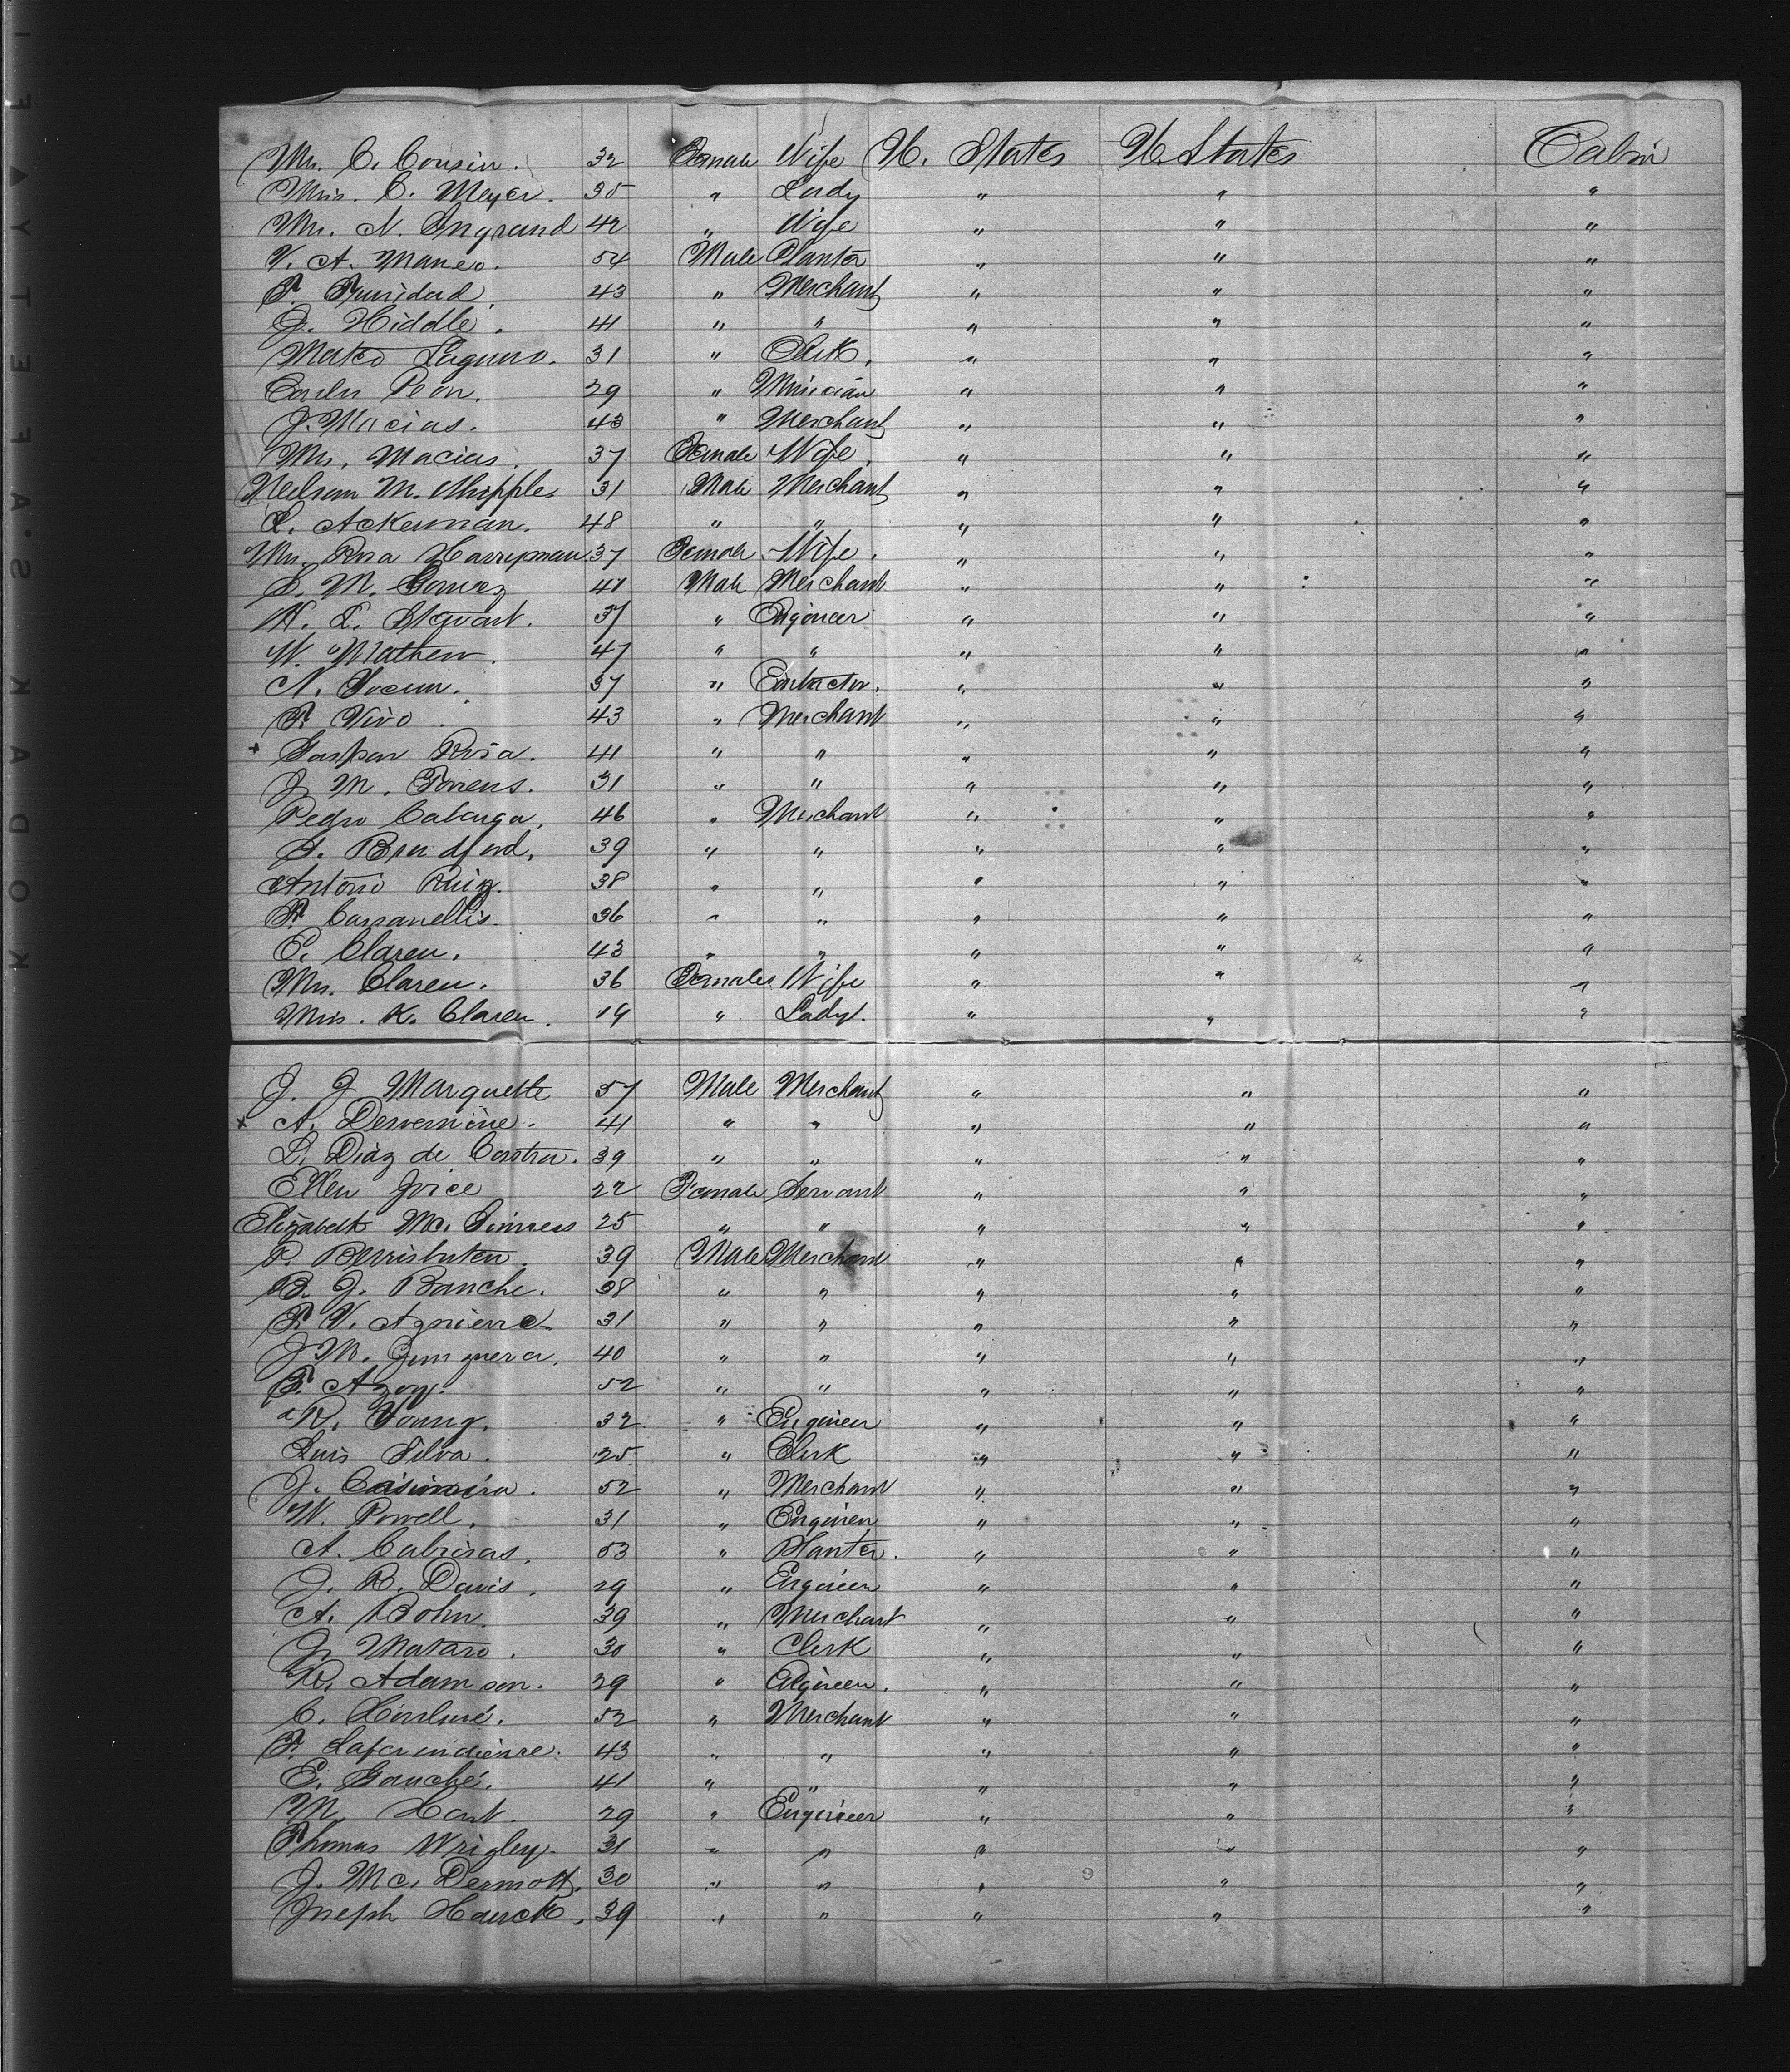 Mrs. C. Cousin. 32 Female Wife U. States U. States Cabin
Miss. C. Meyer. 35 " Lady " " "
Mrs. N. Ingrand 42 " Wife " " "
V. A. Maneo. 54 Male Planter " " "
T. Trinidad. 43 " Merchant " " "
J. Hiddle. 41 " " " " "
Mateo Laguno. 31 " Clerk. " " "
Carlos Peon. 29 " Musician " " "
J. Macias. 43 " Merchant " " "
Mrs. Macias. 37 Female Wife. " " "
M. Whipples 31 Male Merchant " " "
L. Ackerman. 48 " " " " "
Mrs. Rosa Harryman. 37 Female Wife. " " "
S. M. 41 Male Merchant " " "
H. L. Stewart. 37 " Engineer " " "
W. Mathew. 47 " " " " "
N. Yocum. 37 " Contractor. " " "
F. Vivo. 43 " Merchant " " "
+ Gaspar Rosa. 41 " " " " "
J. M. 31 " " " " "
Pedro Cabarga. 46 " Merchant " " "
S. Bradford. 39 " " " " "
Antonio Ruiz. 38 " " " " "
F. Casanellis. 36 " " " " "
E. Claren. 43 " " " " "
Mrs. Claren. 36 Females Wife " " "
Miss. K. Claren. 19 " Lady. " " "
J. J Marquette 57 Male Merchant " " "
+ A. Desvernine. 41 " " " " "
L. Diaz de Castra. 39 " " " " "
Ellen Joice 22 Female Servant " " "
Elizabeth Mc. Ginness 25 " " " " "
P. 39 Male Merchant " " "
B. J. Banche. 38 " " " " "
F. V. Aguierre 31 " " " " "
J M. Junquera. 40 " " " " "
F. Azoy. 52 " " " " "
R. Young. 32 " Engineer " " "
Luis Silva. 25 " Clerk " " "
J. Casimira. 52 " Merchant " " "
W. Powell. 31 " Engineer " " "
A. Cabrisas. 53 " Planter. " " "
J. R. Davis. 29 " Engineer " " "
A. Bohn. 39 " Merchant " " "
J. Mataro. 30 " Clerk " " "
R. Adamson. 29 " Engineer. " " "
C. 52 " Merchant " " "
F. 43 " " " " "
E. Gauché. 41 " " " " "
M. Hart. 29 " Engineer " " "
Thomas Wrigley. 31 " " " " "
J. Mc. Dermott. 30 " " " " "
Joseph Hauck. 39 " " " " "
KODAK SAFETY FI